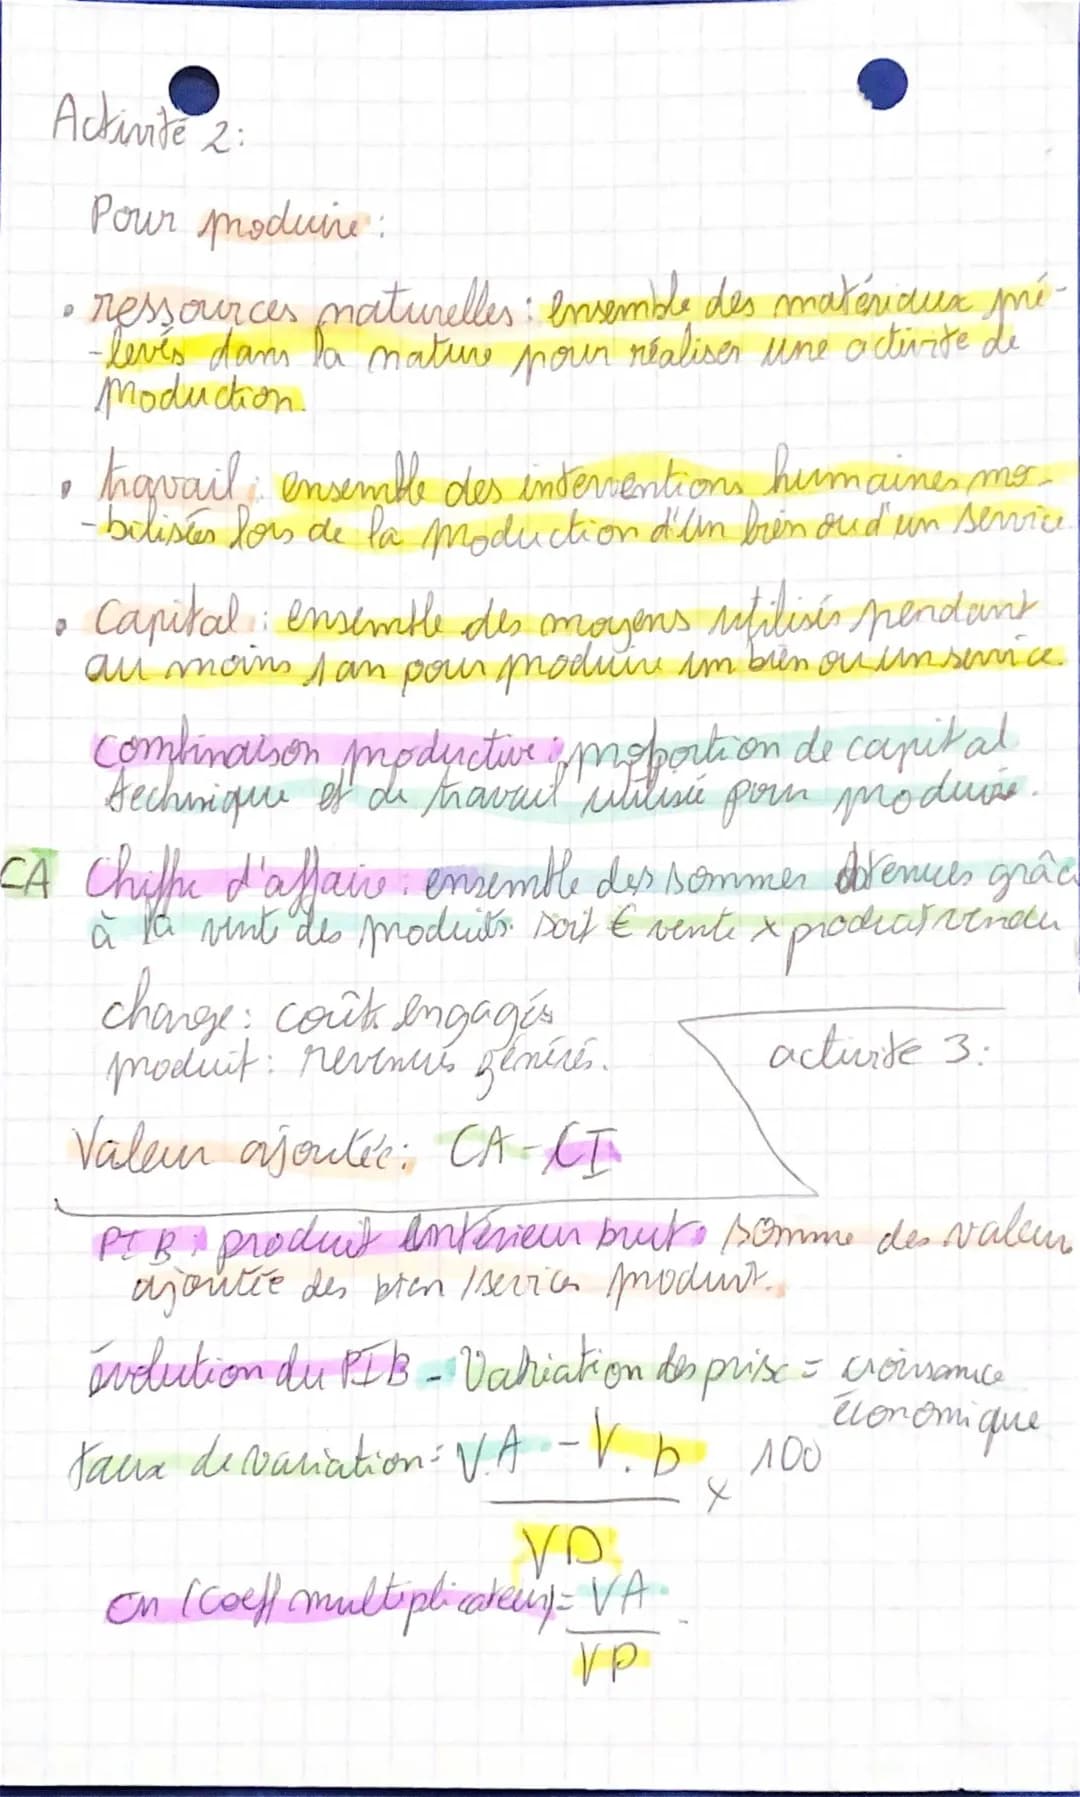 Activité 2:
Pour produire :
• ressources naturelles : ensemble des matériaux pré-
-levés dans la nature pour réaliser une activité de
production.
• travail : ensemble des interventions humaines mo-
-bilisées lors de la production d'un bien ou d'un service
• Capital : ensemble des moyens utilisés pendant
au moins 1 an pour produire un bien ou un service.
Combinaison productive : proportion de capital
technique et de travail utilisé pour produire.
CA Chiffre d'affaire : ensemble des sommes obtenues grâc
à la vente des produits. soit € vente x produit vendu
charge : coûts engagés
produit : revenus générés.
activité 3 :
Valeur ajoutée : CA - CI
PIB : produit intérieur brut : somme des valeur
ajoutée des bien / services produit.
évolution du PIB - Variation des prix = croissance
économique
taux de variation = V.A - V.D x 100
VD
Cm (Coeff multiplicateur) = VA
VD